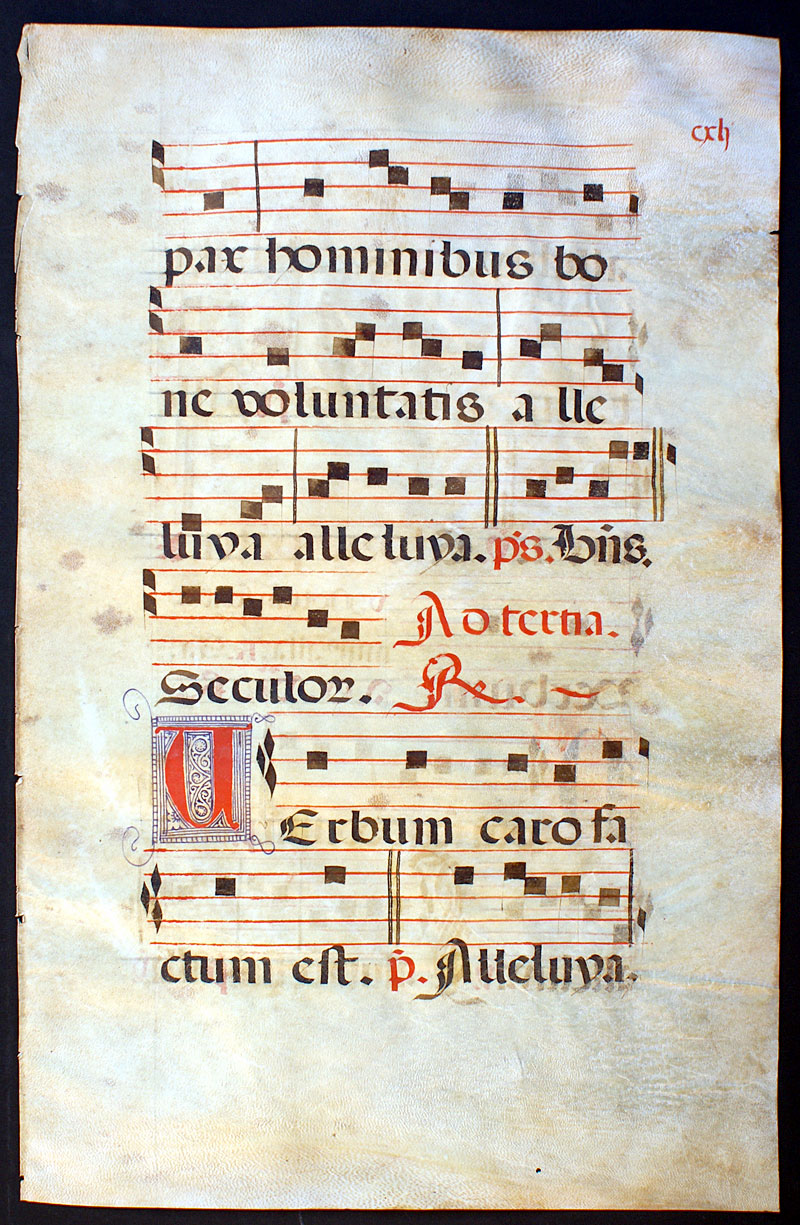 cxlj
pax hominibus bo
ne voluntatis a lle
luya alleluya. ps. Bñs.
Ad tertia.
Seculor. Re.
VErbum caro fa
ctum est. p̄. Alleluya.